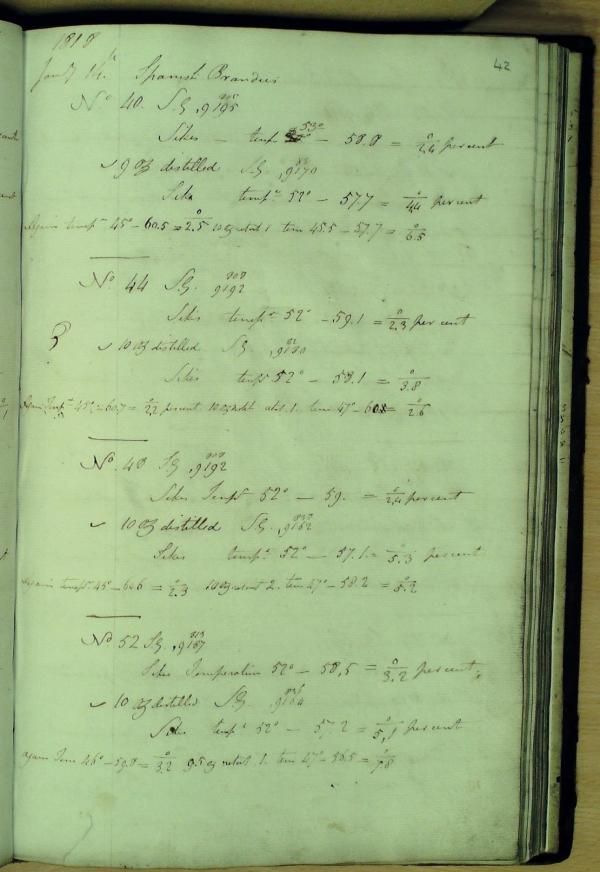 1818
42
Jany 14th Spanish Brandies
No 40. S.G. ,9195
Sikes - temp 53° - 58.8 = 0/2.4 percent
9 oz distilled S.G. ,9170
Sikes tempr 52° - 57.7 = 0/4.4 percent
Again tempr 45° - 60.5 = 0/2.5 10 oz 1. tem 45.5 - 57.7 = 0/6.5
No 44 S.G. 9192
Sikes tempr 52° - 59.1 = 0/2.3 per cent
3 10 oz distilled S.G. ,9180
Sikes tempr 52° - 58.1 = 0/3.8
Again Tempr 45° - 60.7 = 0/2.2 percent 10 oz 1. tem 47° - = 0/2.6
No. 48 S.G. ,9192
Sikes Tempr 52° - 59. = 0/2.4 percent
10 oz distilled S.G. ,9162
Sikes tempr 52° - 57.1 = 0/5.3 percent
Again tempr 45° - 60.6 = 0/2.3 10 oz 2. tem 47° - 58.2 = 0/5.2
No 52 S.G. ,9187
Sikes Temperature 52° - 58,5 = 0/3.2 percent
10 oz distilled S.G. ,9164
Sikes tempr 52° - 57.2 = 0/5,1 percent
again Tem 46° - 59.8 = 0/3.2 9.5 oz 1. tem 47° - 56.5 = 0/7.8